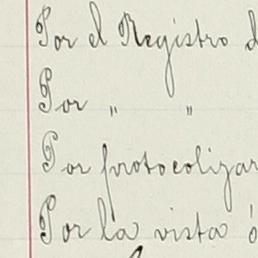 Por el Registro d
Por " "
Por protocolizar
Por la vista ó